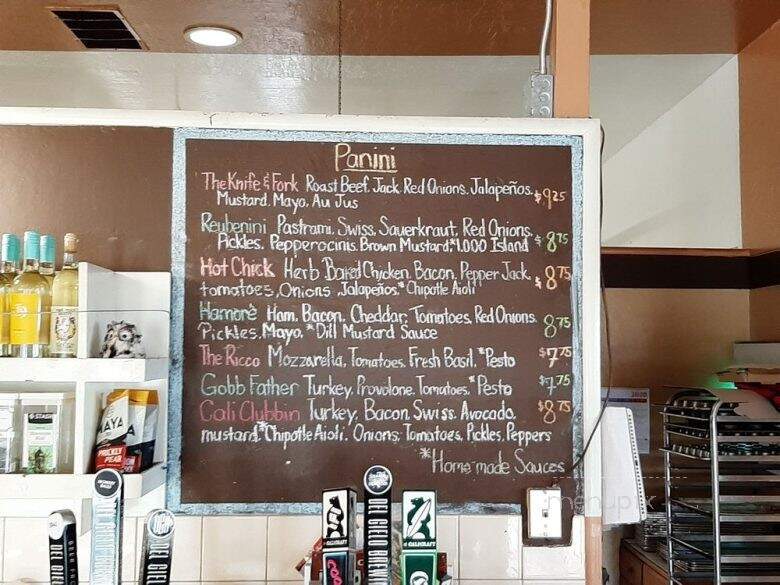 Panini
The Knife & Fork Roast Beef, Jack, Red Onions, Jalapeños, $9.25
Mustard, Mayo, Au Jus
Reubenini Pastrami, Swiss, Sauerkraut, Red Onions,
Pickles, Pepperocinis, Brown Mustard, *1,000 Island $8.75
Hot Chick Herb Baked Chicken, Bacon, Pepper Jack,
tomatoes, Onions, Jalapeños, *Chipotle Aioli $8.75
Hamore Ham, Bacon, Cheddar, Tomatoes, Red Onions,
Pickles, Mayo, *Dill Mustard Sauce 8.75
The Ricco Mozzarella, Tomatoes, Fresh Basil, *Pesto $7.75
Gobb Father Turkey, Provolone, Tomatoes, *Pesto $7.75
Cali Clubbin Turkey, Bacon, Swiss, Avocado, $8.75
mustard, *Chipotle Aioli, Onions, Tomatoes, Pickles, Peppers
*Homemade Sauces
MAYA
PRICKLY
PEAR
STASH
DEL CIELO
CALICRAFT
menupix